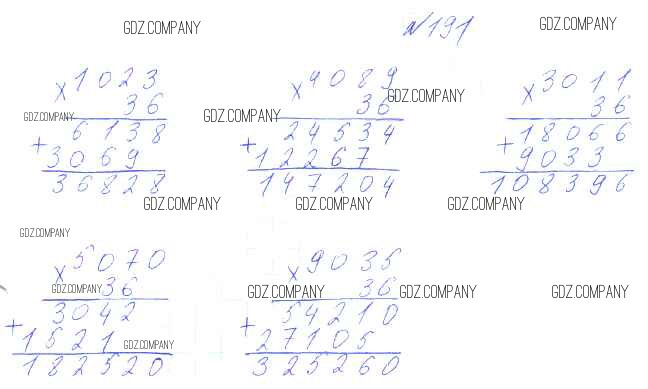 GDZ.COMPANY
№191
GDZ.COMPANY
× 1023
36
GDZ.COMPANY
+ 6138
3069
36828
× 4089
36
GDZ.COMPANY
GDZ.COMPANY
+ 24534
12267
147204
× 3011
36
+ 18066
9033
108396
GDZ.COMPANY
GDZ.COMPANY
GDZ.COMPANY
GDZ.COMPANY
× 5070
36
GDZ.COMPANY
+ 3042
1521
GDZ.COMPANY
182520
× 9035
36
GDZ.COMPANY
GDZ.COMPANY
GDZ.COMPANY
+ 54210
27105
325260